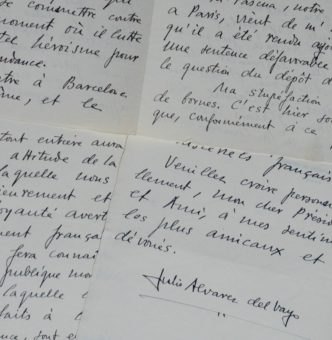 de commettre contre
moment où il lutte
tel héroïsme pour
pendance.
à Barcelone
et le
Pascua, notre
à Paris, vient de m'
qu'il a été rendu
une sentence défavorable
le question du dépôt d
Ma stupéfaction
de bornes. C'est hier
que, conformément à ce
tout entière aura
attitude de la
laquelle nous
ieurement et
oyauté avert
ment français
fera connai
publique
laquelle
faits à l
français
Veuillez croire
tlement, mon cher Présid
et Ami, à mes sentim
les plus amicaux et
dévoués.
Julio Alvarez del Vayo